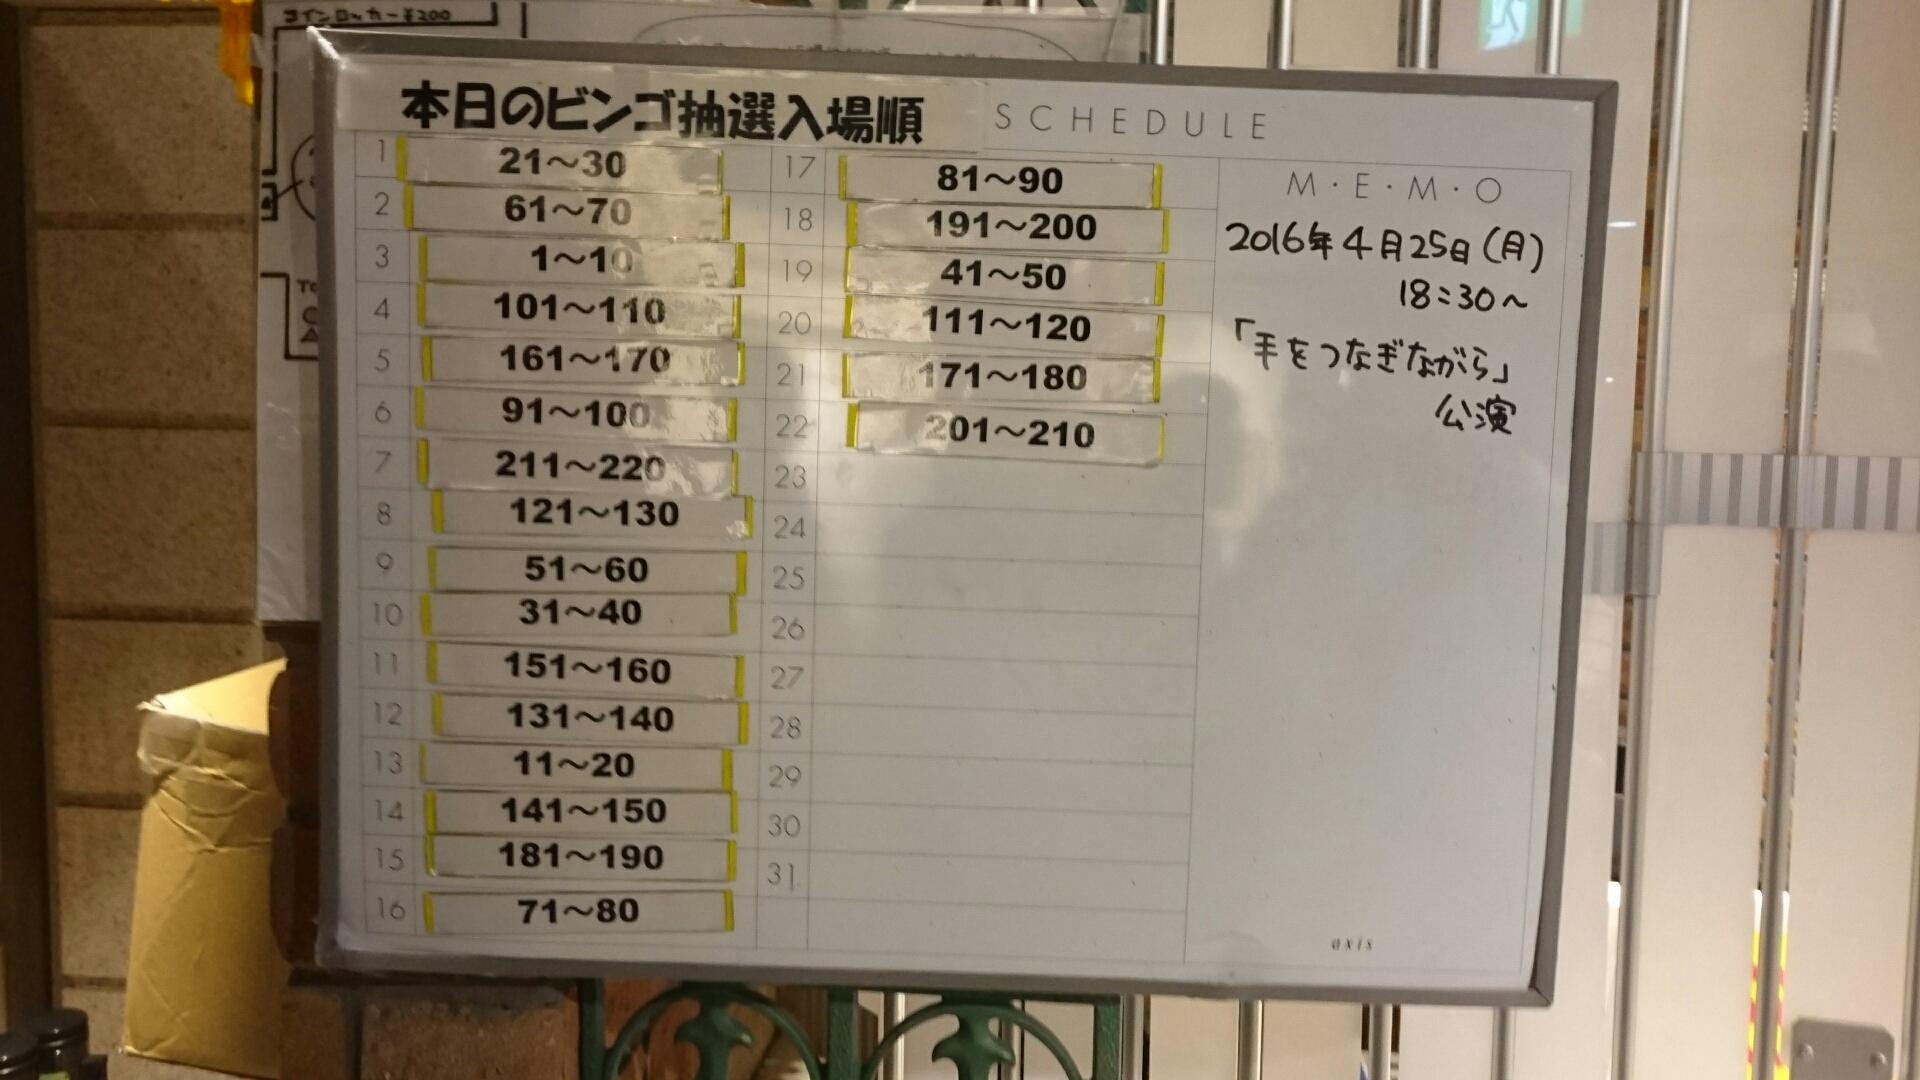 コインロッカー ¥200
本日のビンゴ抽選入場順
SCHEDULE
1 21～30
2 61～70
3 1～10
4 101～110
5 161～170
6 91～100
7 211～220
8 121～130
9 51～60
10 31～40
11 151～160
12 131～140
13 11～20
14 141～150
15 181～190
16 71～80
17 81～90
18 191～200
19 41～50
20 111～120
21 171～180
22 201～210
23
24
25
26
27
28
29
30
31
M・E・M・O
2016年4月25日(月)
18:30～
「手をつなぎながら」
公演
axis